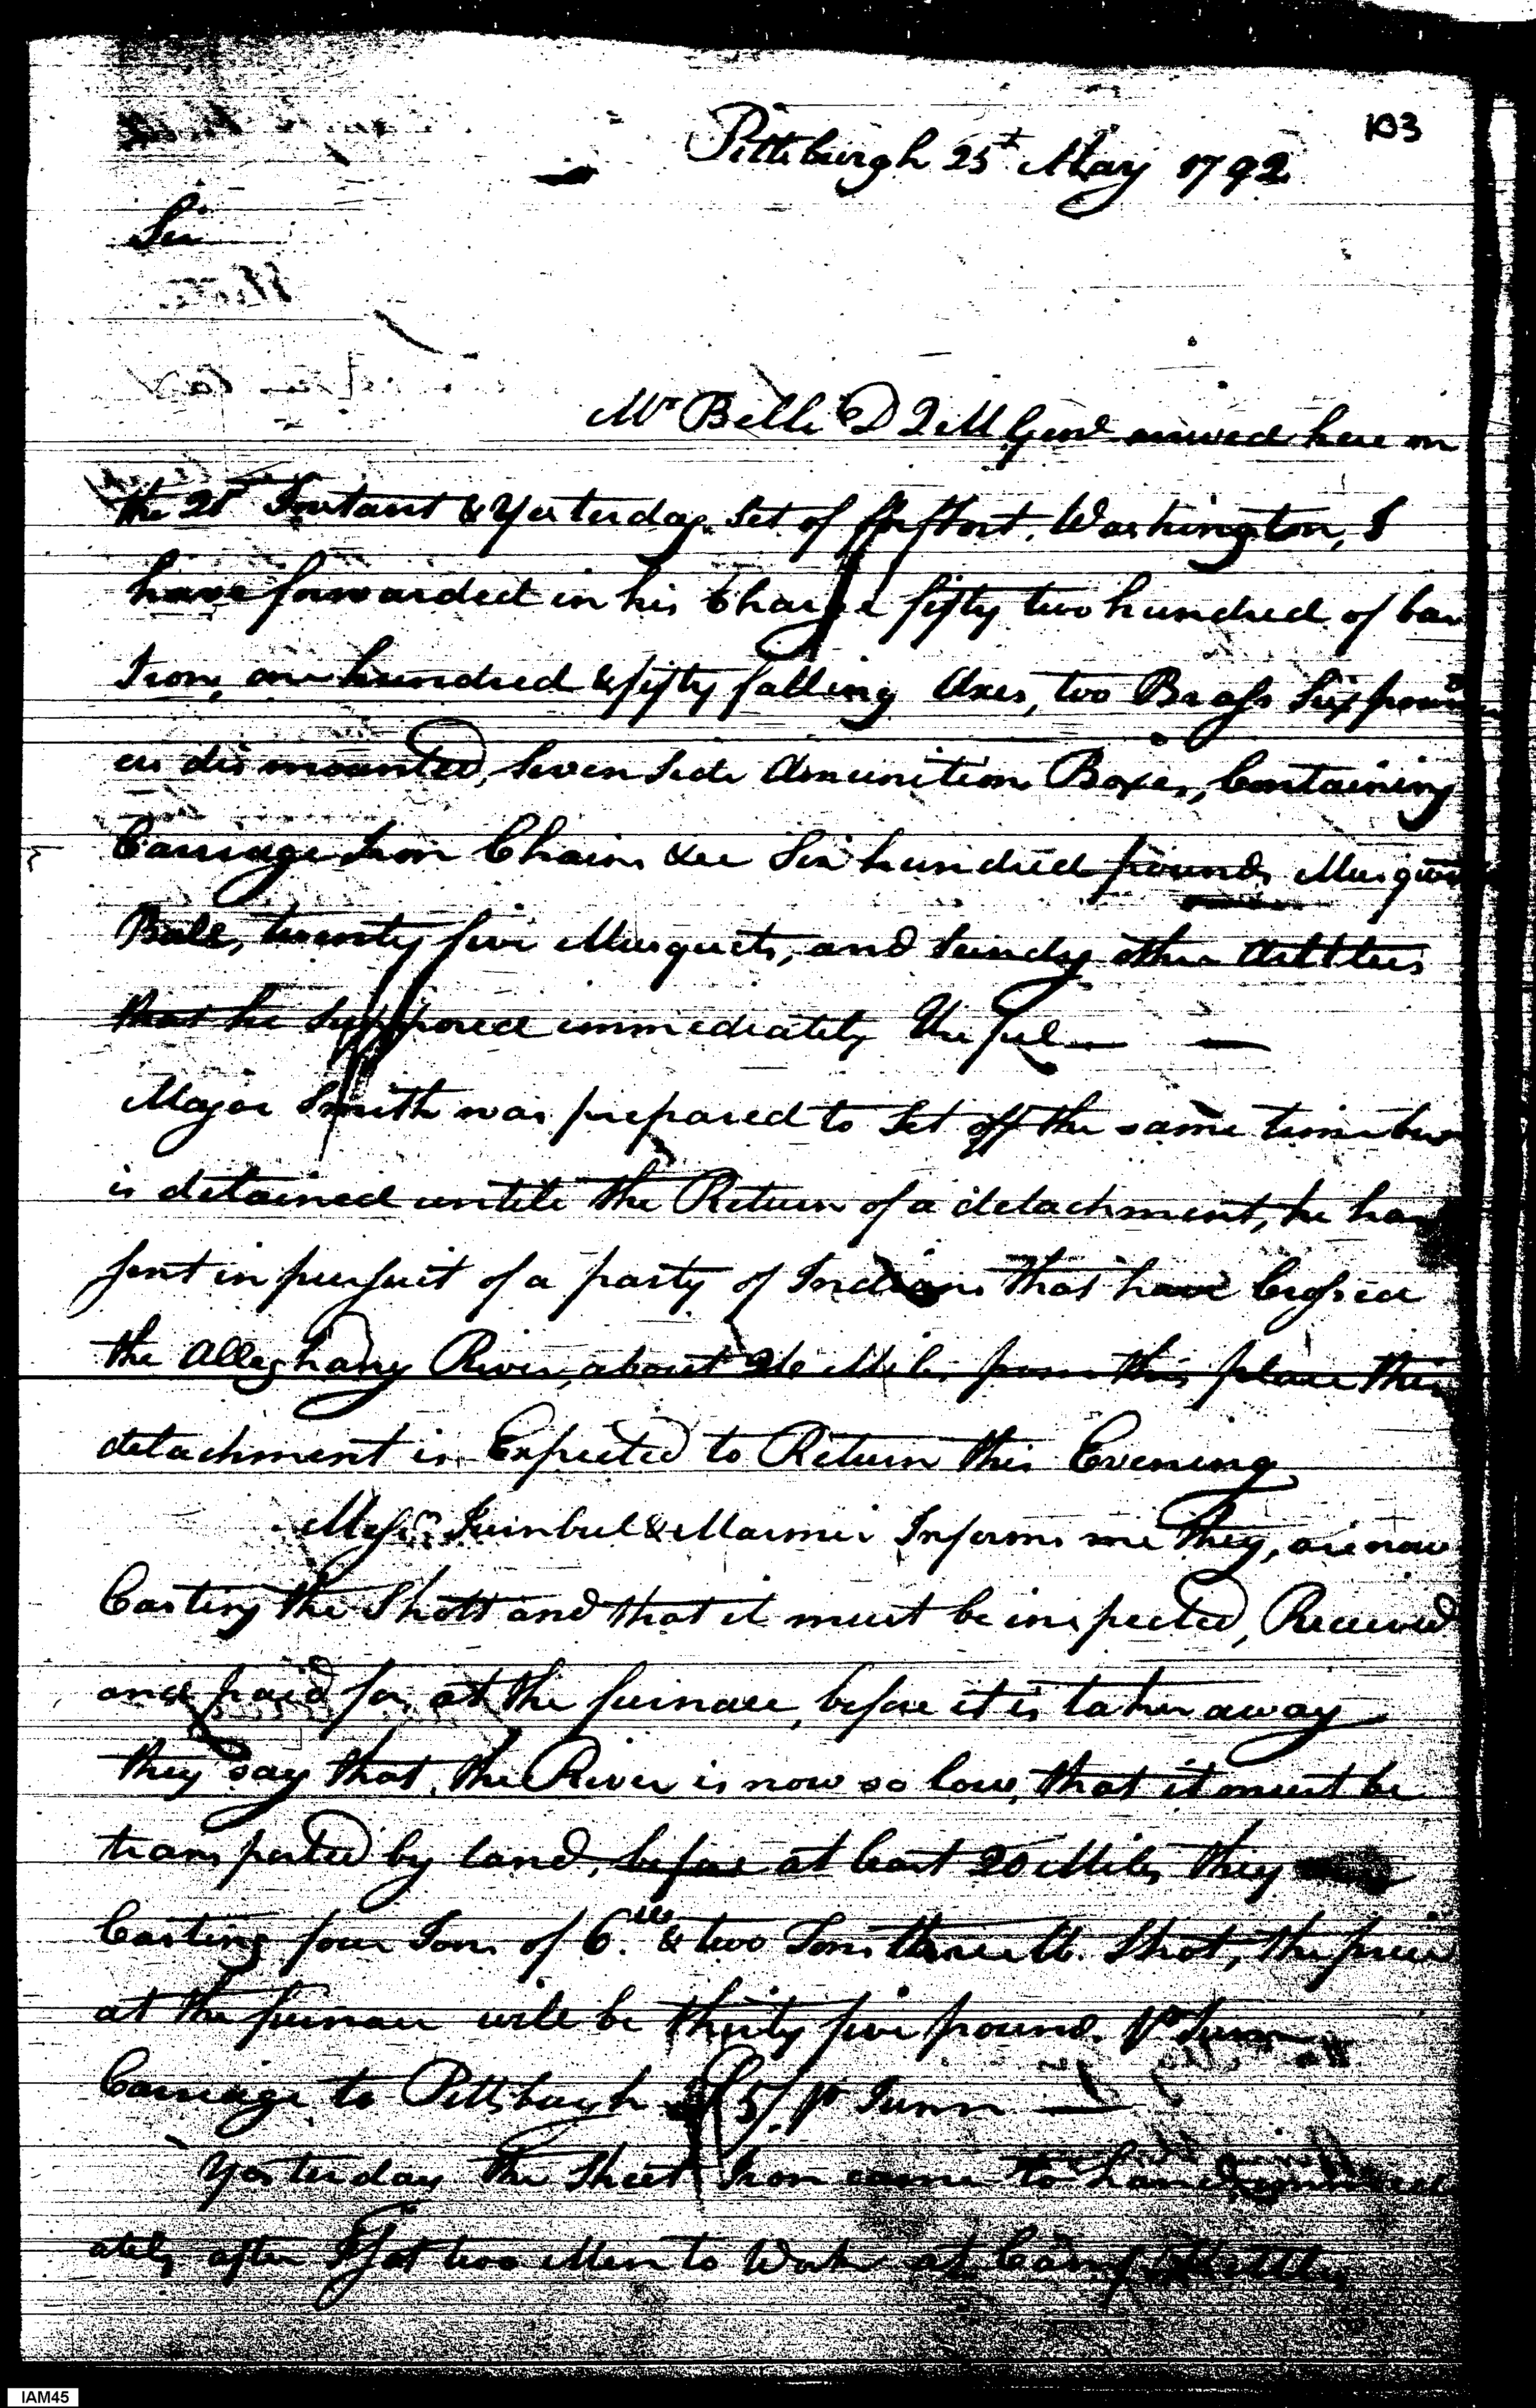 103
Pittsburgh 25t May 1792
Sir
Mr Belli D Q M Genl arrived here on
the 21st Instant & Yesterday Set of for fort Washington, I
have forwarded in his Charge fifty two hundred of bar
Iron, one hundred & fifty falling Axes, two Brass Six pound
ers dismounted, Seven Side Amunition Boxes, Containing
Carriage Iron Chains &cc Six hundred pounds Musquet
Ball, twenty five Musquets, and Sundry other Articles
that he Supposed immediately Useful —
Major Smith was prepared to Set off the same time but
is detained untill the Return of a detachment, he has
sent in pursuit of a party of Indians that have Crossed
the Alleghany River, about 26 Miles from this place this
detachment is Expected to Return this Evening
Messrs Turnbul & Marmie Informs me they, are now
Casting the Shott and that it must be inspected, Received
and paid for, at the furnace, before it is taken away
they say that, the River is now so low, that it must be
transported by land, before at least 20 Miles they
Casting four Tons of 6.lb & two Tons three lb. Shot, the price
at the furnace will be thirty five pounds pr Tunn
Carriage to Pittsburgh £5/. pr Tunn —
Yesterday the Sheet Iron came to hand, immedi
ately after I Got two Men to Work at Camp Kettles
IAM45